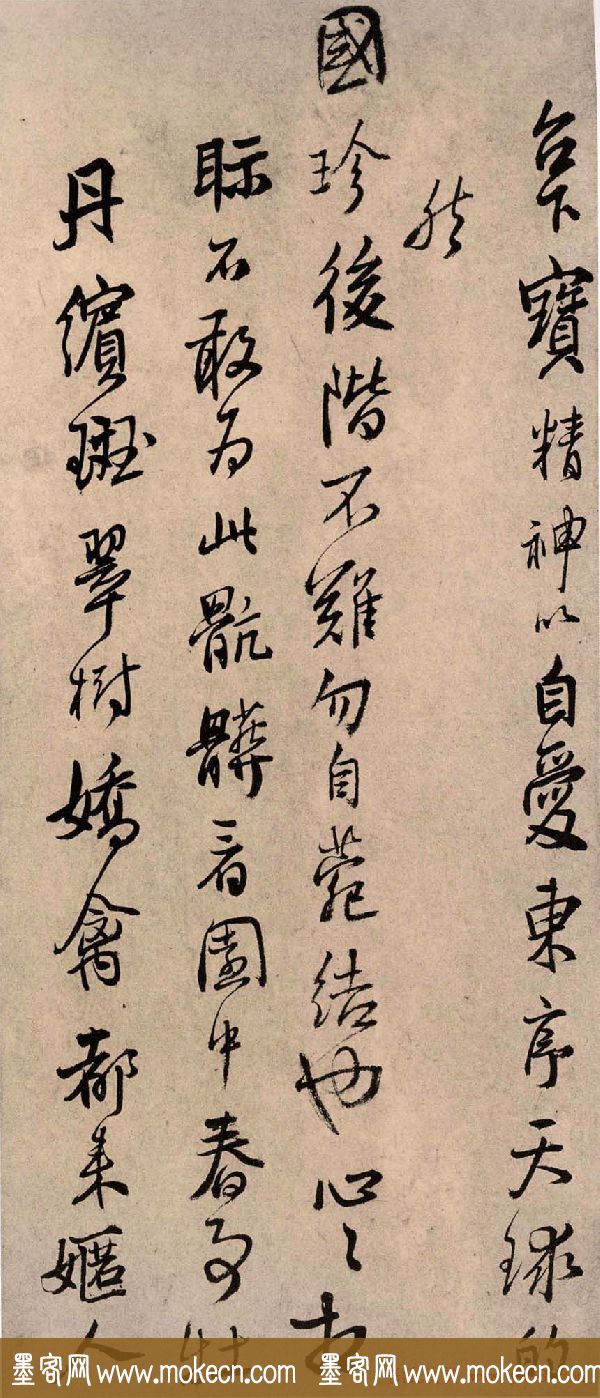 台下寶精神以自愛東序天球的
然
國珍後階不難勿自菀結也心〻
眎不敢为此骯髒看園中春事牡
丹繽斑翠樹嬌禽都来嫟人
墨客网 www.mokecn.com 墨客网 www.mokecn.com